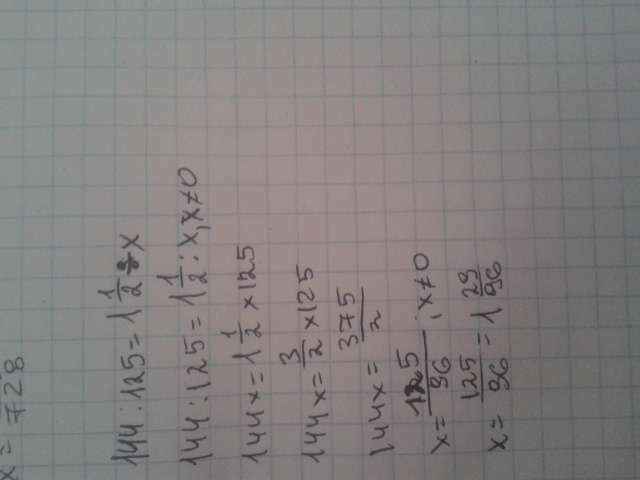 x = 728
144 : 125 = 1 1/2 : x
144 : 125 = 1 1/2 : x, x≠0
144x = 1 1/2 × 125
144x = 3/2 × 125
144x = 375/2
x = 125/96 ; x≠0
x = 125/96 = 1 29/96